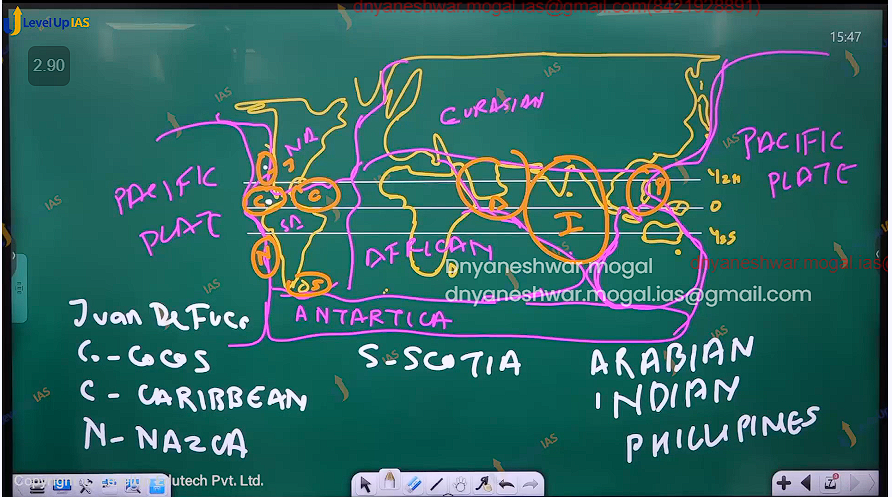 LevelUp IAS
dnyaneshwar.mogal.ias@gmail.com(8421928891)
15:47
2.90
IAS
IAS
EURASIAN
NA
J
PACIFIC
PLATE
PACIFIC
PLAT
C.
C
SA
N
S
A
I
P
0
AFRICAN
IAS
Dnyaneshwar.mogal
dnyaneshwar.mogal.ias@gmail.com
ANTARTICA
Juan De Fuca
C. - COCOS
C - CARIBBEAN
N - NAZCA
S - SCOTIA
ARABIAN
INDIAN
PHILLIPINES
IAS
IAS
IAS
IAS
Edutech Pvt. Ltd.